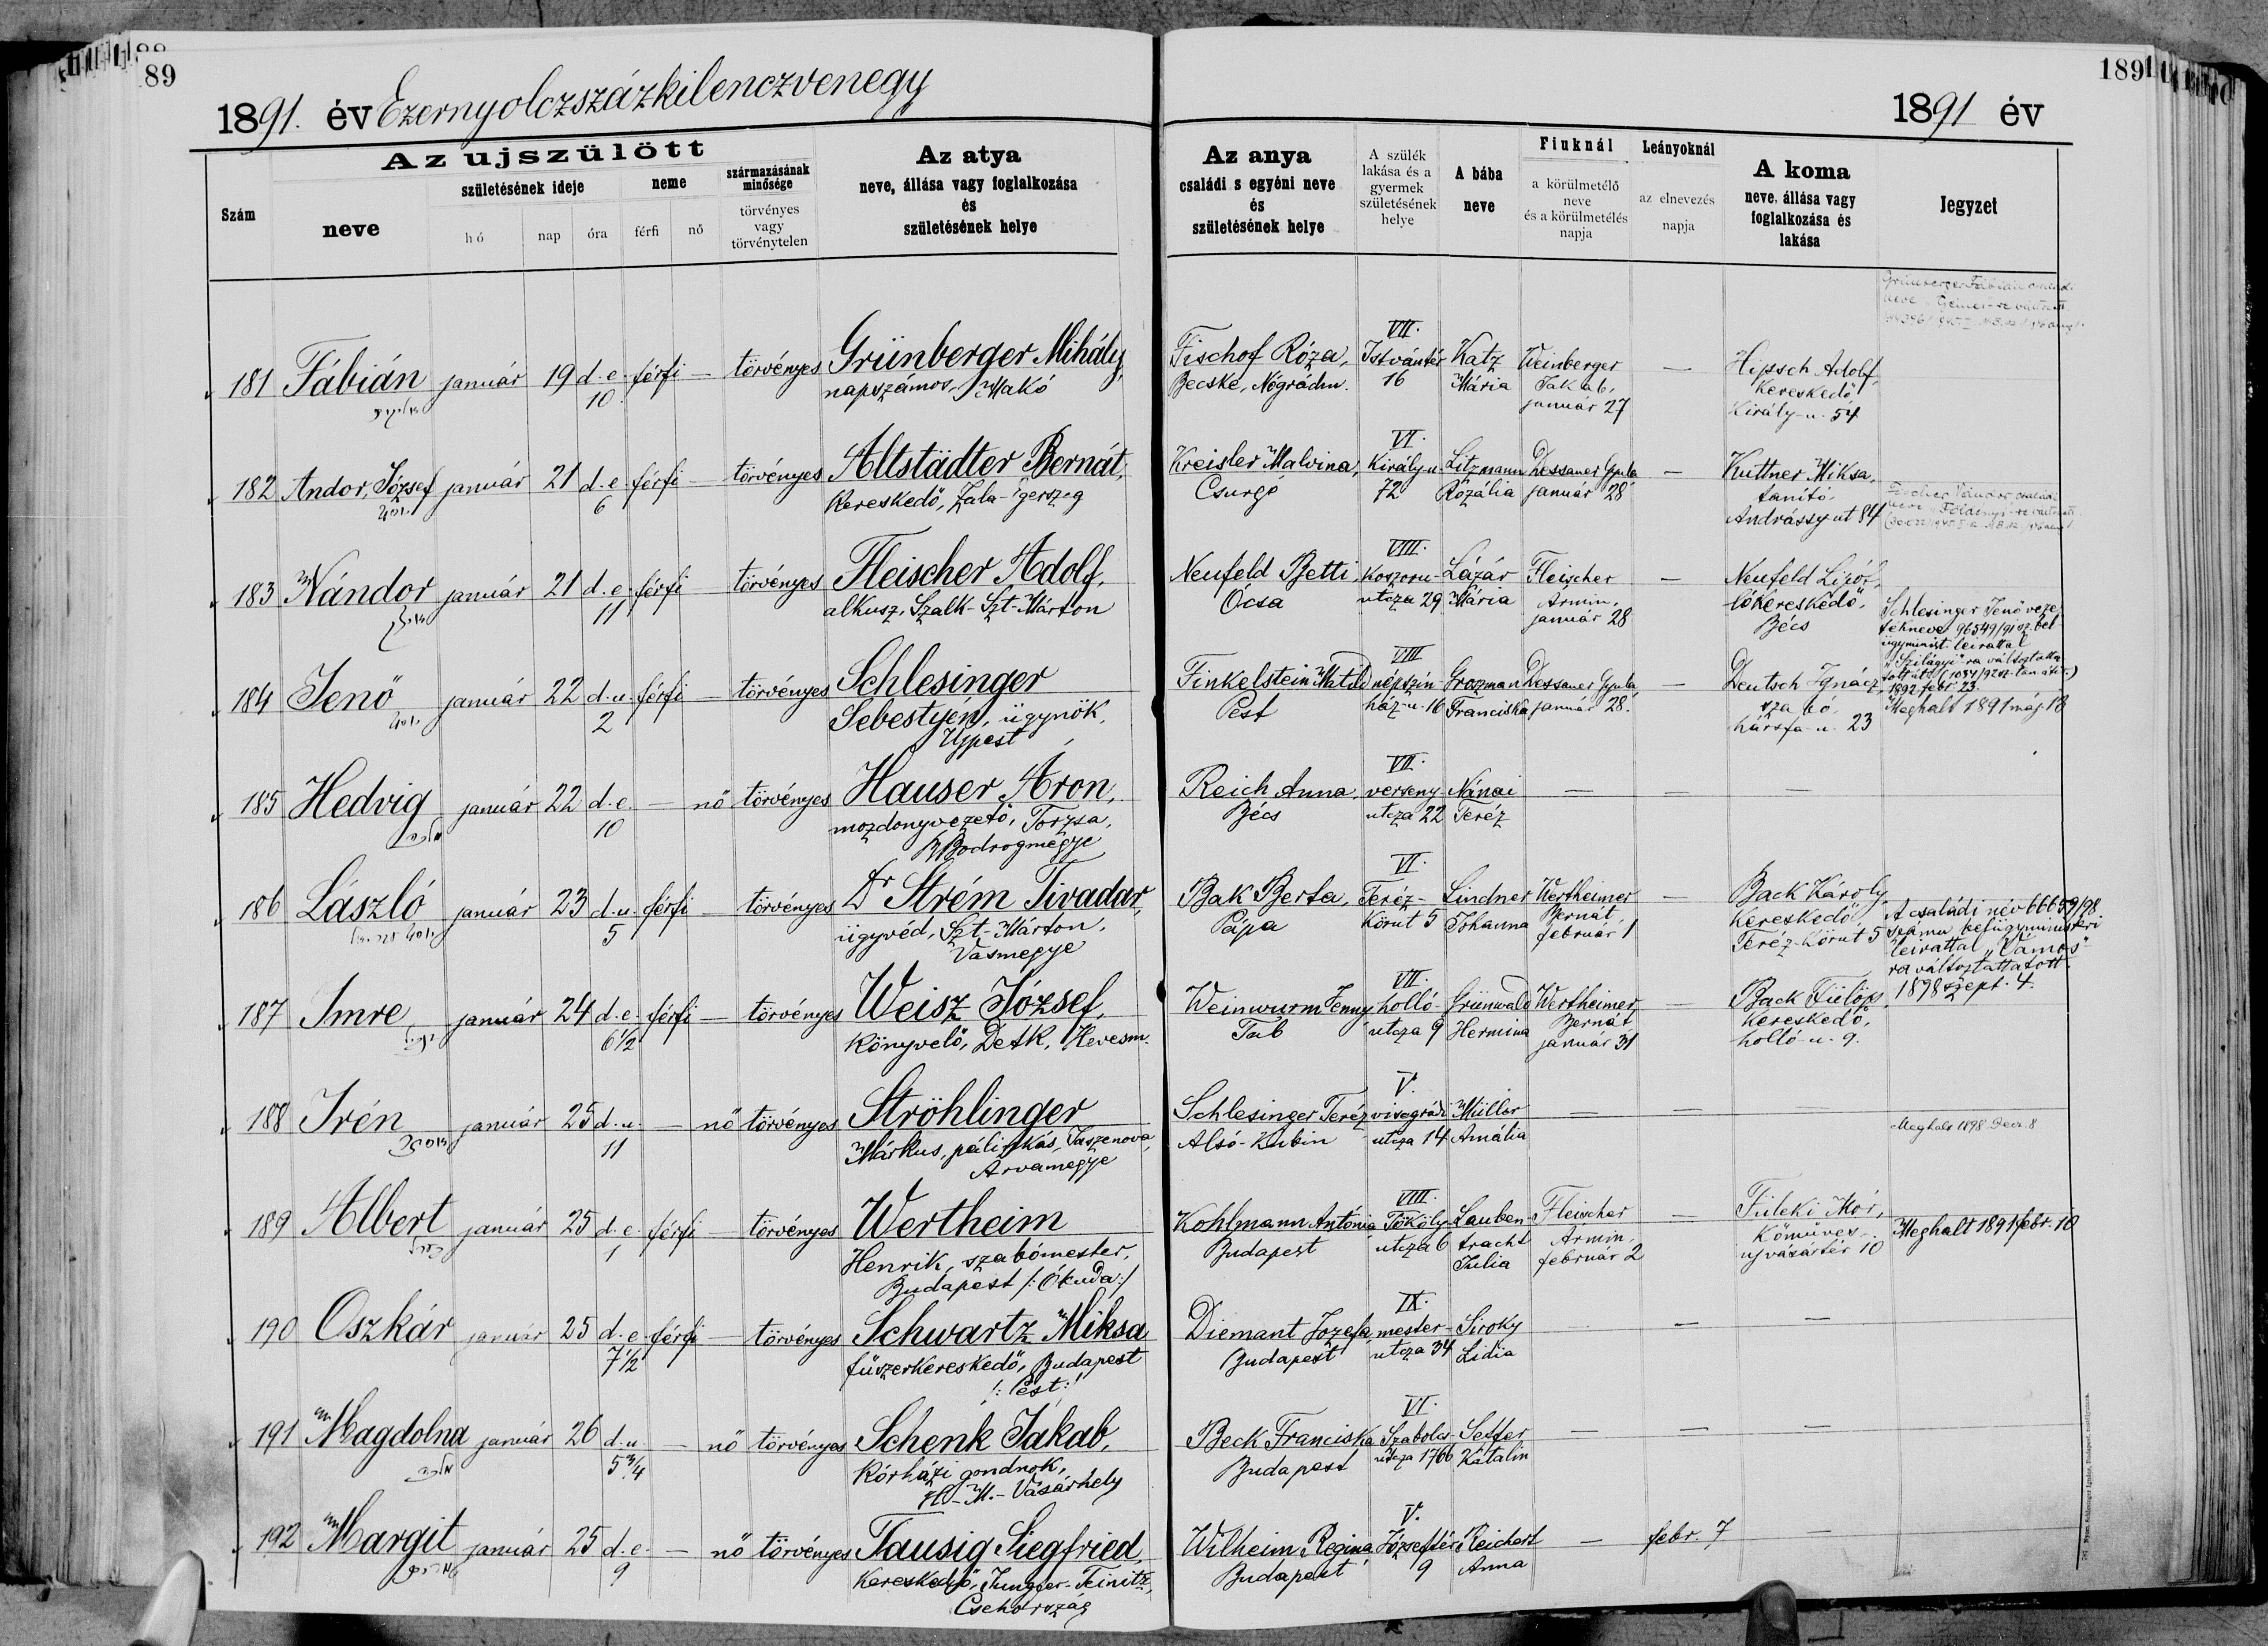 89
1891. év Ezernyolczszázkilenczvenegy
Szám
Az ujszülött
neve
születésének ideje
hó
nap
óra
neme
férfi
nő
származásának minősége
törvényes vagy törvénytelen
Az atya
neve, állása vagy foglalkozása
és
születésének helye
181 Fábián január 19 d. e. 10 férfi — törvényes Grünberger Mihály,
napszámos, Makó
182 Andor, József január 21 d. e. 6 férfi — törvényes Altstädter Bernát,
kereskedő, Zala-Egerszeg
183 Nándor január 21 d. e. 11 férfi — törvényes Fleischer Adolf,
alkusz, Szalk-Szt-Márton
184 Jenő január 22 d. u. 2 férfi — törvényes Schlesinger
Sebestyén, ügynök,
Ujpest
185 Hedvig január 22 d. e. 10 — nő törvényes Hauser Áron,
mozdonyvezető, Torzsa,
B. Bodrogmegye
186 László január 23 d. u. 5 férfi — törvényes Dr Strém Tivadar,
ügyvéd, Szt-Márton,
Vasmegye
187 Imre január 24 d. e. 6 1/2 férfi — törvényes Weisz József,
könyvelő, Detk, Hevesm.
188 Irén január 25 d. u. 11 — nő törvényes Ströhlinger
Márkus, pálinkás, Jaszenova,
Arvamegye
189 Albert január 25 d. e. 1 férfi — törvényes Wertheim
Henrik, szabómester,
Budapest /: Óbuda :/
190 Oszkár január 25 d. e. 7 1/2 férfi — törvényes Schwartz Miksa
fűszerkereskedő, Budapest
/: Pest :/
191 Magdolna január 26 d. u. 5 3/4 — nő törvényes Schenk Jakab,
kórházi gondnok,
H.-M.-Vásárhely
192 Margit január 25 d. e. 9 — nő törvényes Tausig Siegfried,
kereskedő, Jungfer-Teinitz,
Csehország
1891
1891 év
Az anya
családi s egyéni neve
és
születésének helye
A szülék lakása és a gyermek születésének helye
A bába
neve
Fiuknál
a körülmetélő neve és a körülmetélés napja
Leányoknál
az elnevezés napja
A koma
neve, állása vagy foglalkozása és lakása
Jegyzet
Grünberger Fábián családi
neve
Fischof Róza, VII. Istvántér Katz Weinberger — Hipsch Adolf,
Becske, Nógrádm. 16 Mária Jakab, kereskedő
január 27 Király-u. 54
Kreisler Malvina, VI. Király-u. Litzmann Dessauer Gyula — Kuttner Miksa,
Csurgó 72 Rozália január 28 tanító,
Andrássy-ut 84
Fleischer Nándor családi
neve
Neufeld Betti, VIII. Koszoru- Lázár Fleischer — Neufeld Lipót,
Ócsa utcza 29 Mária Ármin, lókereskedő,
január 28 Bécs
Schlesinger Jenő veze-
tékneve 96549/91 sz. bel-
ügyminist. leirattal
"Szilágyi"-ra változtatta-
tott át
1892 febr. 23.
Meghalt 1891 máj. 18
Finkelstein Matild VIII népszin- Groszman Dessauer Gyula, — Deutsch Ignácz,
Pest ház-u. 16 Franciska január 28. szabó,
hársfa-u. 23
Reich Anna, VII. verseny- Nánai — — —
Bécs utcza 22 Teréz
Bak Berta, VI. Teréz- Lindner Wertheimer — Back Károly,
Pápa körut 5 Johanna Bernát, kereskedő,
február 1 Teréz-körut 5
A családi név 66659/98
számu belügyministeri
leirattal "Vámos"-
ra változtattatott.
1898 szept. 4.
Weinwurm Jenny VII. holló- Grünwald Wertheimer — Back Fülöp,
Tab utcza 9 Hermina Bernát, kereskedő,
január 31 holló-u. 9.
Schlesinger Teréz V. visegrádi Müller — —
Alsó-Kubin utcza 14 Amália
Meghalt 1898 Decz. 8
Kohlmann Antónia VIII. Tököly- Lauben- Fleischer — Füleki Mór,
Budapest utcza 6 tracht Ármin, kőmüves,
Julia február 2 ujvásártér 10
Meghalt 1891 febr. 10
Diemant Jozefa, IX. mester- Siroky — — —
Budapest utcza 34 Lidia
Beck Franciska VI. Szabolcs- Setfer — — —
Budapest utcza 1766 Katalin
Wilheim Regina V. Józseftér Reichert — febr. 7 —
Budapest 9 Anna